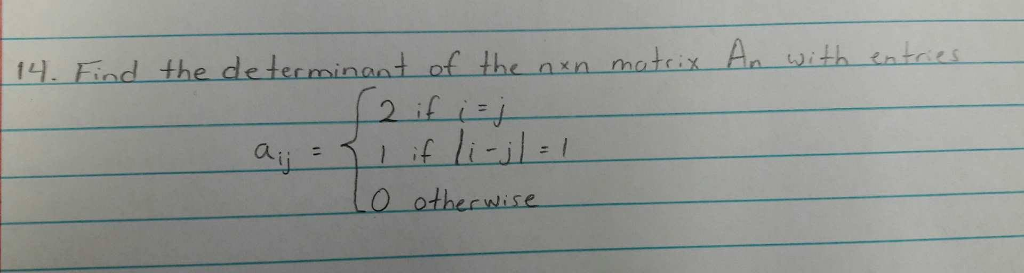 14. Find the determinant of the n×n matrix An with entries
2 if i = j
aij = { 1 if |i-j| = 1
0 otherwise